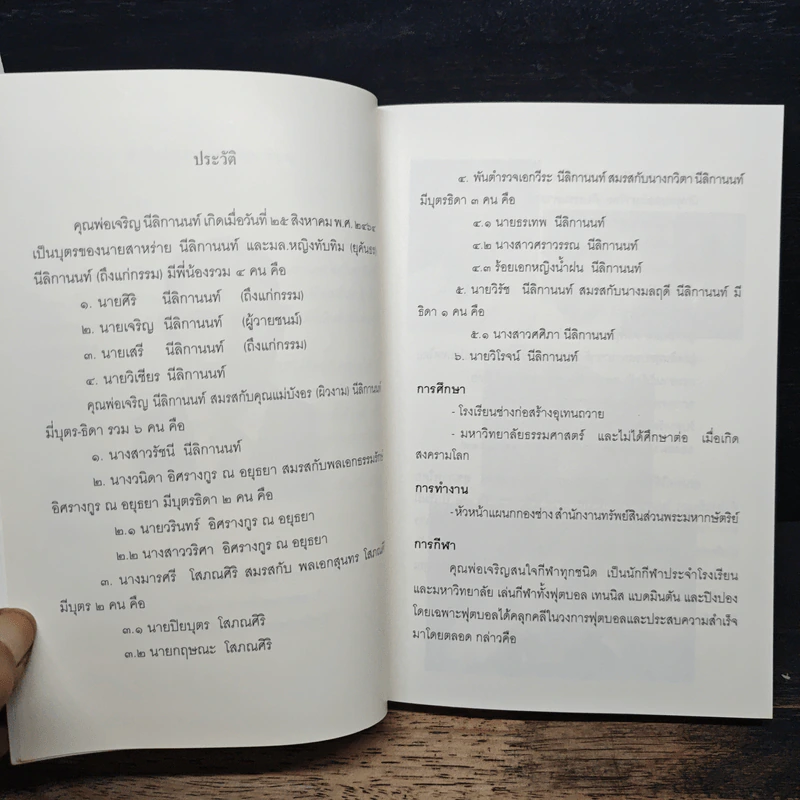 ประวัติ
คุณพ่อเจริญ นีลิกานนท์ เกิดเมื่อวันที่ ๒๕ สิงหาคม พ.ศ. ๒๔๖๔
เป็นบุตรของนายสาหร่าย นีลิกานนท์ และมล.หญิงทับทิม (ยุคันธร)
นีลิกานนท์ (ถึงแก่กรรม) มีพี่น้องรวม ๔ คน คือ
๑. นายศิริ นีลิกานนท์ (ถึงแก่กรรม)
๒. นายเจริญ นีลิกานนท์ (ผู้วายชนม์)
๓. นายเสรี นีลิกานนท์ (ถึงแก่กรรม)
๔. นายวิเชียร นีลิกานนท์
คุณพ่อเจริญ นีลิกานนท์ สมรสกับคุณแม่บังอร (ผิวงาม) นีลิกานนท์
มีบุตร-ธิดา รวม ๖ คน คือ
๑. นางสาวรัชนี นีลิกานนท์
๒. นางวนิดา อิศรางกูร ณ อยุธยา สมรสกับพลเอกธรรมรักษ์
อิศรางกูร ณ อยุธยา มีบุตรธิดา ๒ คน คือ
๒.๑ นายวรินทร์ อิศรางกูร ณ อยุธยา
๒.๒ นางสาววริศา อิศรางกูร ณ อยุธยา
๓. นางมารศรี โสภณศิริ สมรสกับ พลเอกสุนทร โสภณศิริ
มีบุตร ๒ คน คือ
๓.๑ นายปิยบุตร โสภณศิริ
๓.๒ นายกฤษณะ โสภณศิริ
๔. พันตำรวจเอกวีระ นีลิกานนท์ สมรสกับนางกวิตา นีลิกานนท์
มีบุตรธิดา ๓ คน คือ
๔.๑ นายธรเทพ นีลิกานนท์
๔.๒ นางสาวศราวรรณ นีลิกานนท์
๔.๓ ร้อยเอกหญิงน้ำฝน นีลิกานนท์
๕. นายวิรัช นีลิกานนท์ สมรสกับนางมลฤดี นีลิกานนท์ มี
ธิดา ๑ คน คือ
๕.๑ นางสาวศศิภา นีลิกานนท์
๖. นายวิโรจน์ นีลิกานนท์
การศึกษา
- โรงเรียนช่างก่อสร้างอุเทนถวาย
- มหาวิทยาลัยธรรมศาสตร์ และไม่ได้ศึกษาต่อ เมื่อเกิด
สงครามโลก
การทำงาน
-หัวหน้าแผนกกองช่าง สำนักงานทรัพย์สินส่วนพระมหากษัตริย์
การกีฬา
คุณพ่อเจริญสนใจกีฬาทุกชนิด เป็นนักกีฬาประจำโรงเรียน
และมหาวิทยาลัย เล่นกีฬาทั้งฟุตบอล เทนนิส แบดมินตัน และปิงปอง
โดยเฉพาะฟุตบอลได้คลุกคลีในวงการฟุตบอลและประสบความสำเร็จ
มาโดยตลอด กล่าวคือ